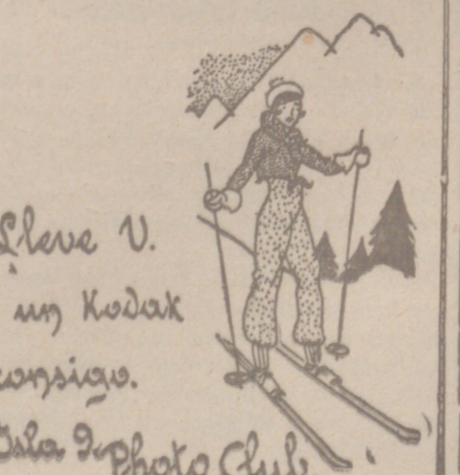 Lleve V.
un Kodak
consigo.
Isla 9. Photo Club